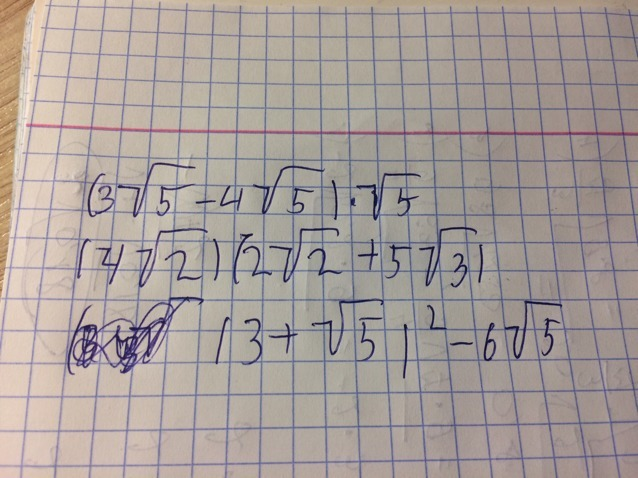 (3√5 - 4√5) · √5
(4√2)(2√2 + 5√3)
(3 + √5)² - 6√5